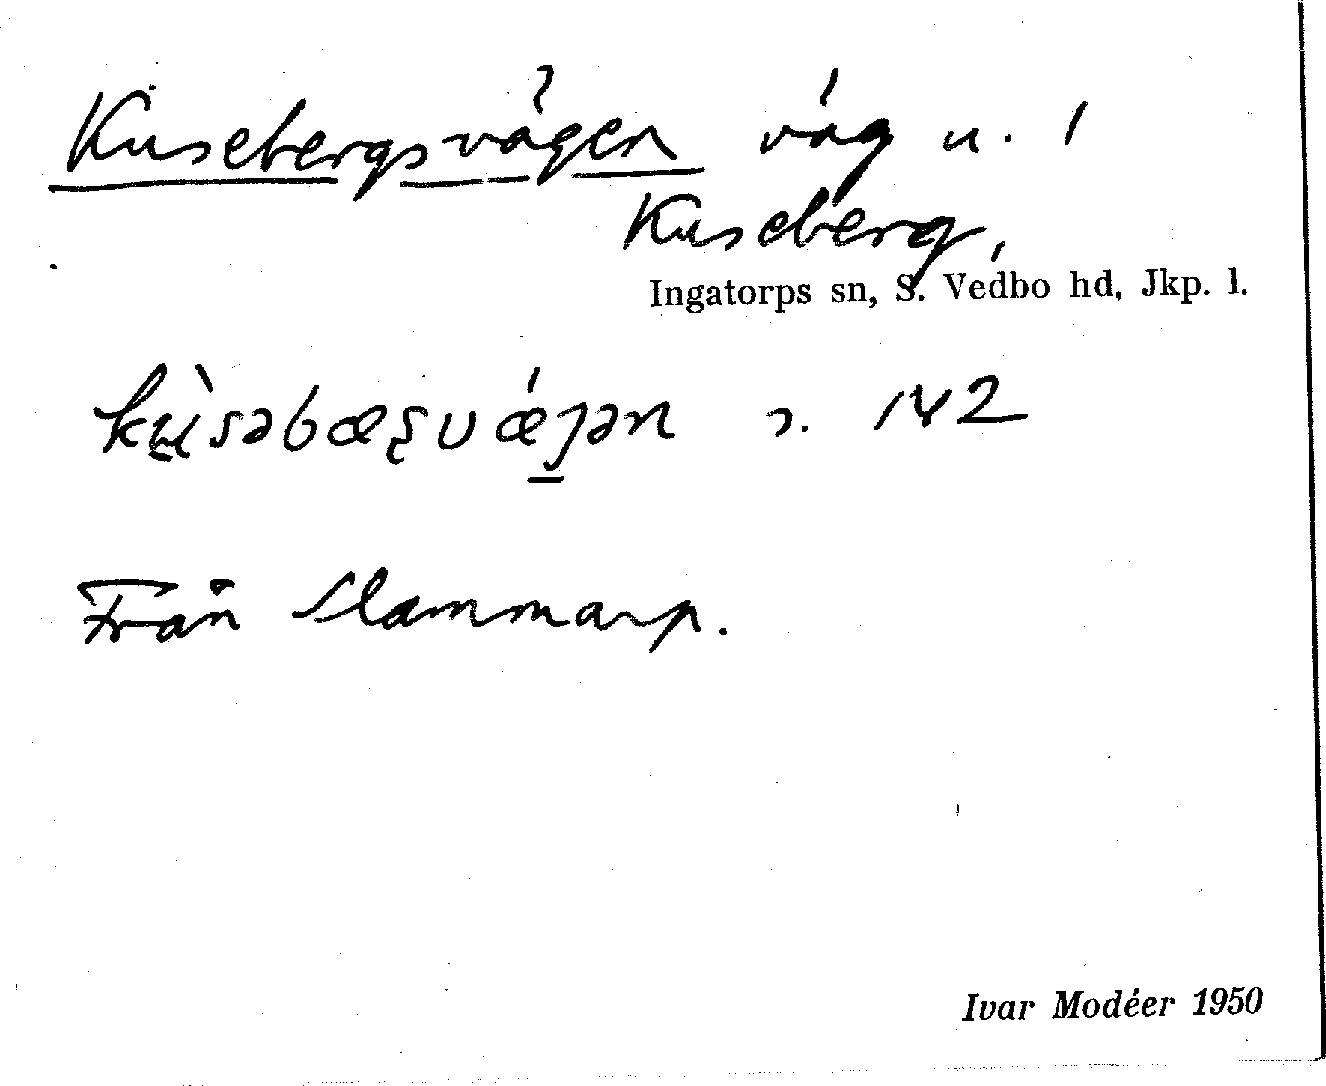 Kusebergsvägen väg u. /
Kuseberg,
Ingatorps sn, S. Vedbo hd, Jkp. l.
kùsəbæʂvǽjən s. 142
Från Slammarp.
Ivar Modéer 1950